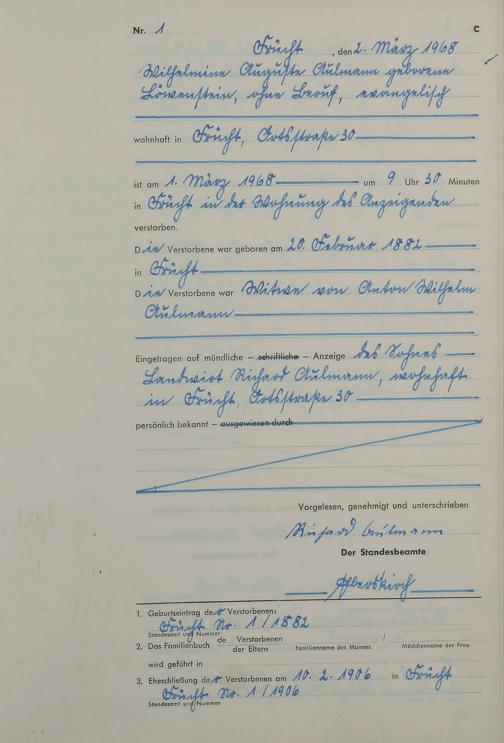 Nr. 1 C
Frücht, den 2. März 1968
Wilhelmine Auguste Aulmann geborene
Löwenstein, ohne Beruf, evangelisch
wohnhaft in Frücht, Ortsstraße 30
ist am 1. März 1968 um 9 Uhr 30 Minuten
in Frücht in der Wohnung des Anzeigenden
verstorben.
Die Verstorbene war geboren am 20. Februar 1882
in Frücht
Die Verstorbene war Witwe von Anton Wilhelm
Aulmann
Eingetragen auf mündliche – schriftliche – Anzeige des Sohnes
Landwirt Richard Aulmann, wohnhaft
in Frücht, Ortsstraße 30
persönlich bekannt – ausgewiesen durch
Vorgelesen, genehmigt und unterschrieben
Richard Aulmann
Der Standesbeamte
1. Geburtseintrag der Verstorbenen:
Frücht Nr. 1/1882
Standesamt und Nummer
2. Das Familienbuch de Verstorbenen /
der Eltern Familienname des Mannes Mädchenname der Frau
wird geführt in
3. Eheschließung der Verstorbenen am 10. 2. 1906 in Frücht
Frücht Nr. 1/1906
Standesamt und Nummer